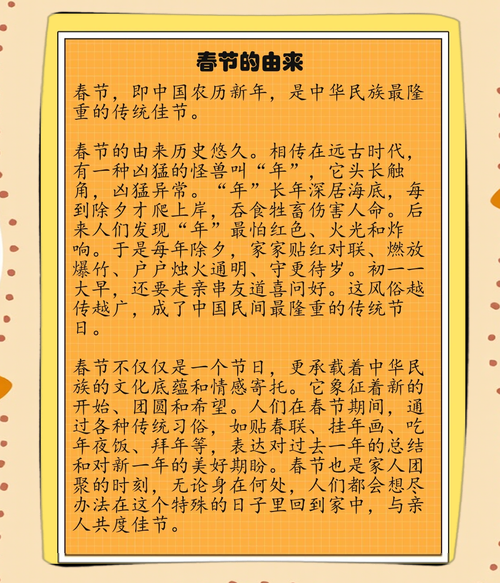 春节的由来
春节，即中国农历新年，是中华民族最隆
重的传统佳节。
春节的由来历史悠久。相传在远古时代，
有一种凶猛的怪兽叫“年”，它头长触
角，凶猛异常。“年”长年深居海底，每
到除夕才爬上岸，吞食牲畜伤害人命。后
来人们发现“年”最怕红色、火光和炸
响。于是每年除夕，家家贴红对联、燃放
爆竹、户户烛火通明、守更待岁。初一一
大早，还要走亲串友道喜问好。这风俗越
传越广，成了中国民间最隆重的传统节
日。
春节不仅仅是一个节日，更承载着中华民
族的文化底蕴和情感寄托。它象征着新的
开始、团圆和希望。人们在春节期间，通
过各种传统习俗，如贴春联、挂年画、吃
年夜饭、拜年等，表达对过去一年的总结
和对新一年的美好期盼。春节也是家人团
聚的时刻，无论身在何处，人们都会想尽
办法在这个特殊的日子里回到家中，与亲
人共度佳节。